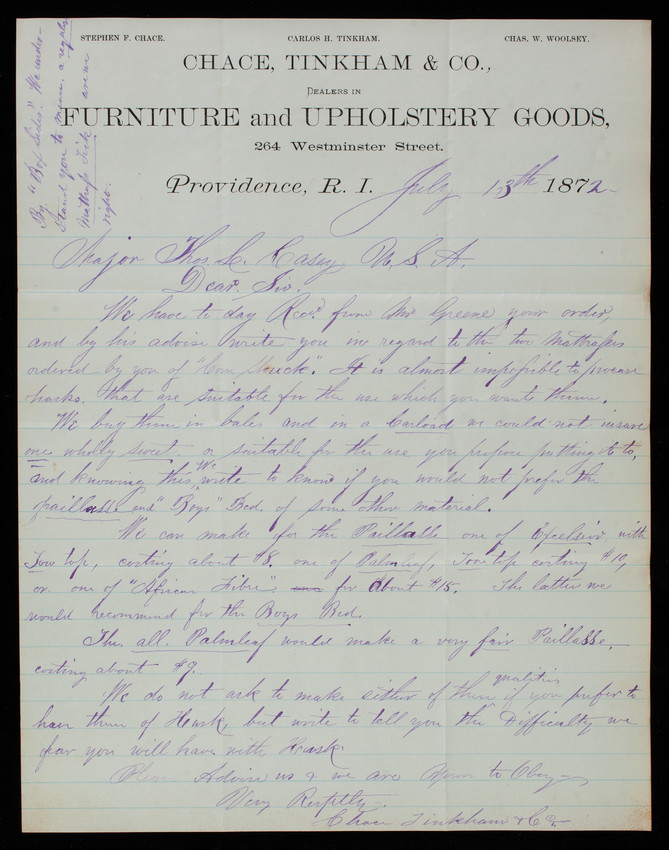 STEPHEN F. CHACE. CARLOS H. TINKHAM. CHAS. W. WOOLSEY.
CHACE, TINKHAM & CO.,
DEALERS IN
FURNITURE and UPHOLSTERY GOODS,
264 Westminster Street.
Providence, R. I. July 13th 1872
Major Thos. L. Casey U. S. A.
Dear Sir.
We have to day Recd. from Mr Greene, your order,
and by his advise write you in regard to the two Mattrasses
ordered by you of "Corn Husk". It is almost impossible to procure
husks, that are suitable for the use which you want them.
We buy them in bales and in a Carload we could not insure
one wholly sweet or suitable for the use you propose putting it to,
and knowing this, We write to know if you would not prefer the
paillasse and "Boys" Bed. of some other material.
We can make for the Paillasse one of Excelsior, with
Tow top, costing about $8. one of Palmleaf, Tow top costing $10,
or one of "African Fibre" for about $15. The latter we
would recommend for the Boys Bed.
The all. Palmleaf would make a very fair Paillasse,
costing about $9.
We do not ask to make either of them qualities if you prefer to
have them of Husk, but write to tell you the Difficulty we
fear you will have with Husk
Please Advise us & we are Yours to Obey
Very Respftly
Chace Tinkham & Co
By "Box Sides." We under-
stand you to mean, a regular
Mattrass Tick are we
right.